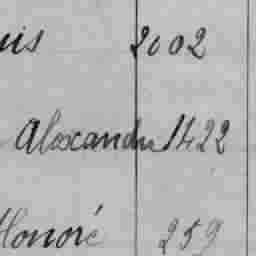 uis 2002
Alexandre 1422
Honoré 259